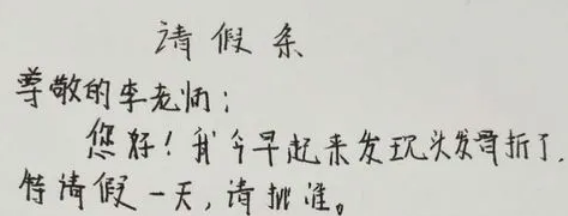 请假条
尊敬的李老师：
您好！我今早起来发现头发骨折了，
特请假一天，请批准。